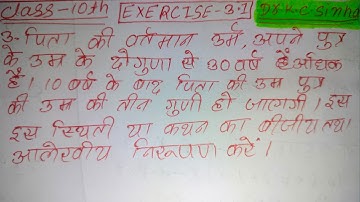 Class-10th EXERCISE-3.1 Dr. K.C Sinha
3. पिता की वर्तमान उर्म, अपने पुत्र
के उम्र के दोगुणा से 30 वर्ष हैं अधिक
हैं। 10 वर्ष के बाद पिता की उम्र पुत्र
की उम्र की तीन गुणी हो जाएगी। इस
इस स्थिती या कथन का बीजीय तथा
आलेखीय निरूपण करें।